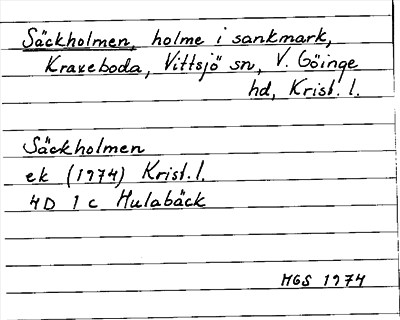 Säckholmen, holme i sankmark,
Kraxeboda, Vittsjö sn, V. Göinge
hd, Krist. l.
Säckholmen
ek (1974) Krist. l.
4D 1c Hulabäck
MGS 1974